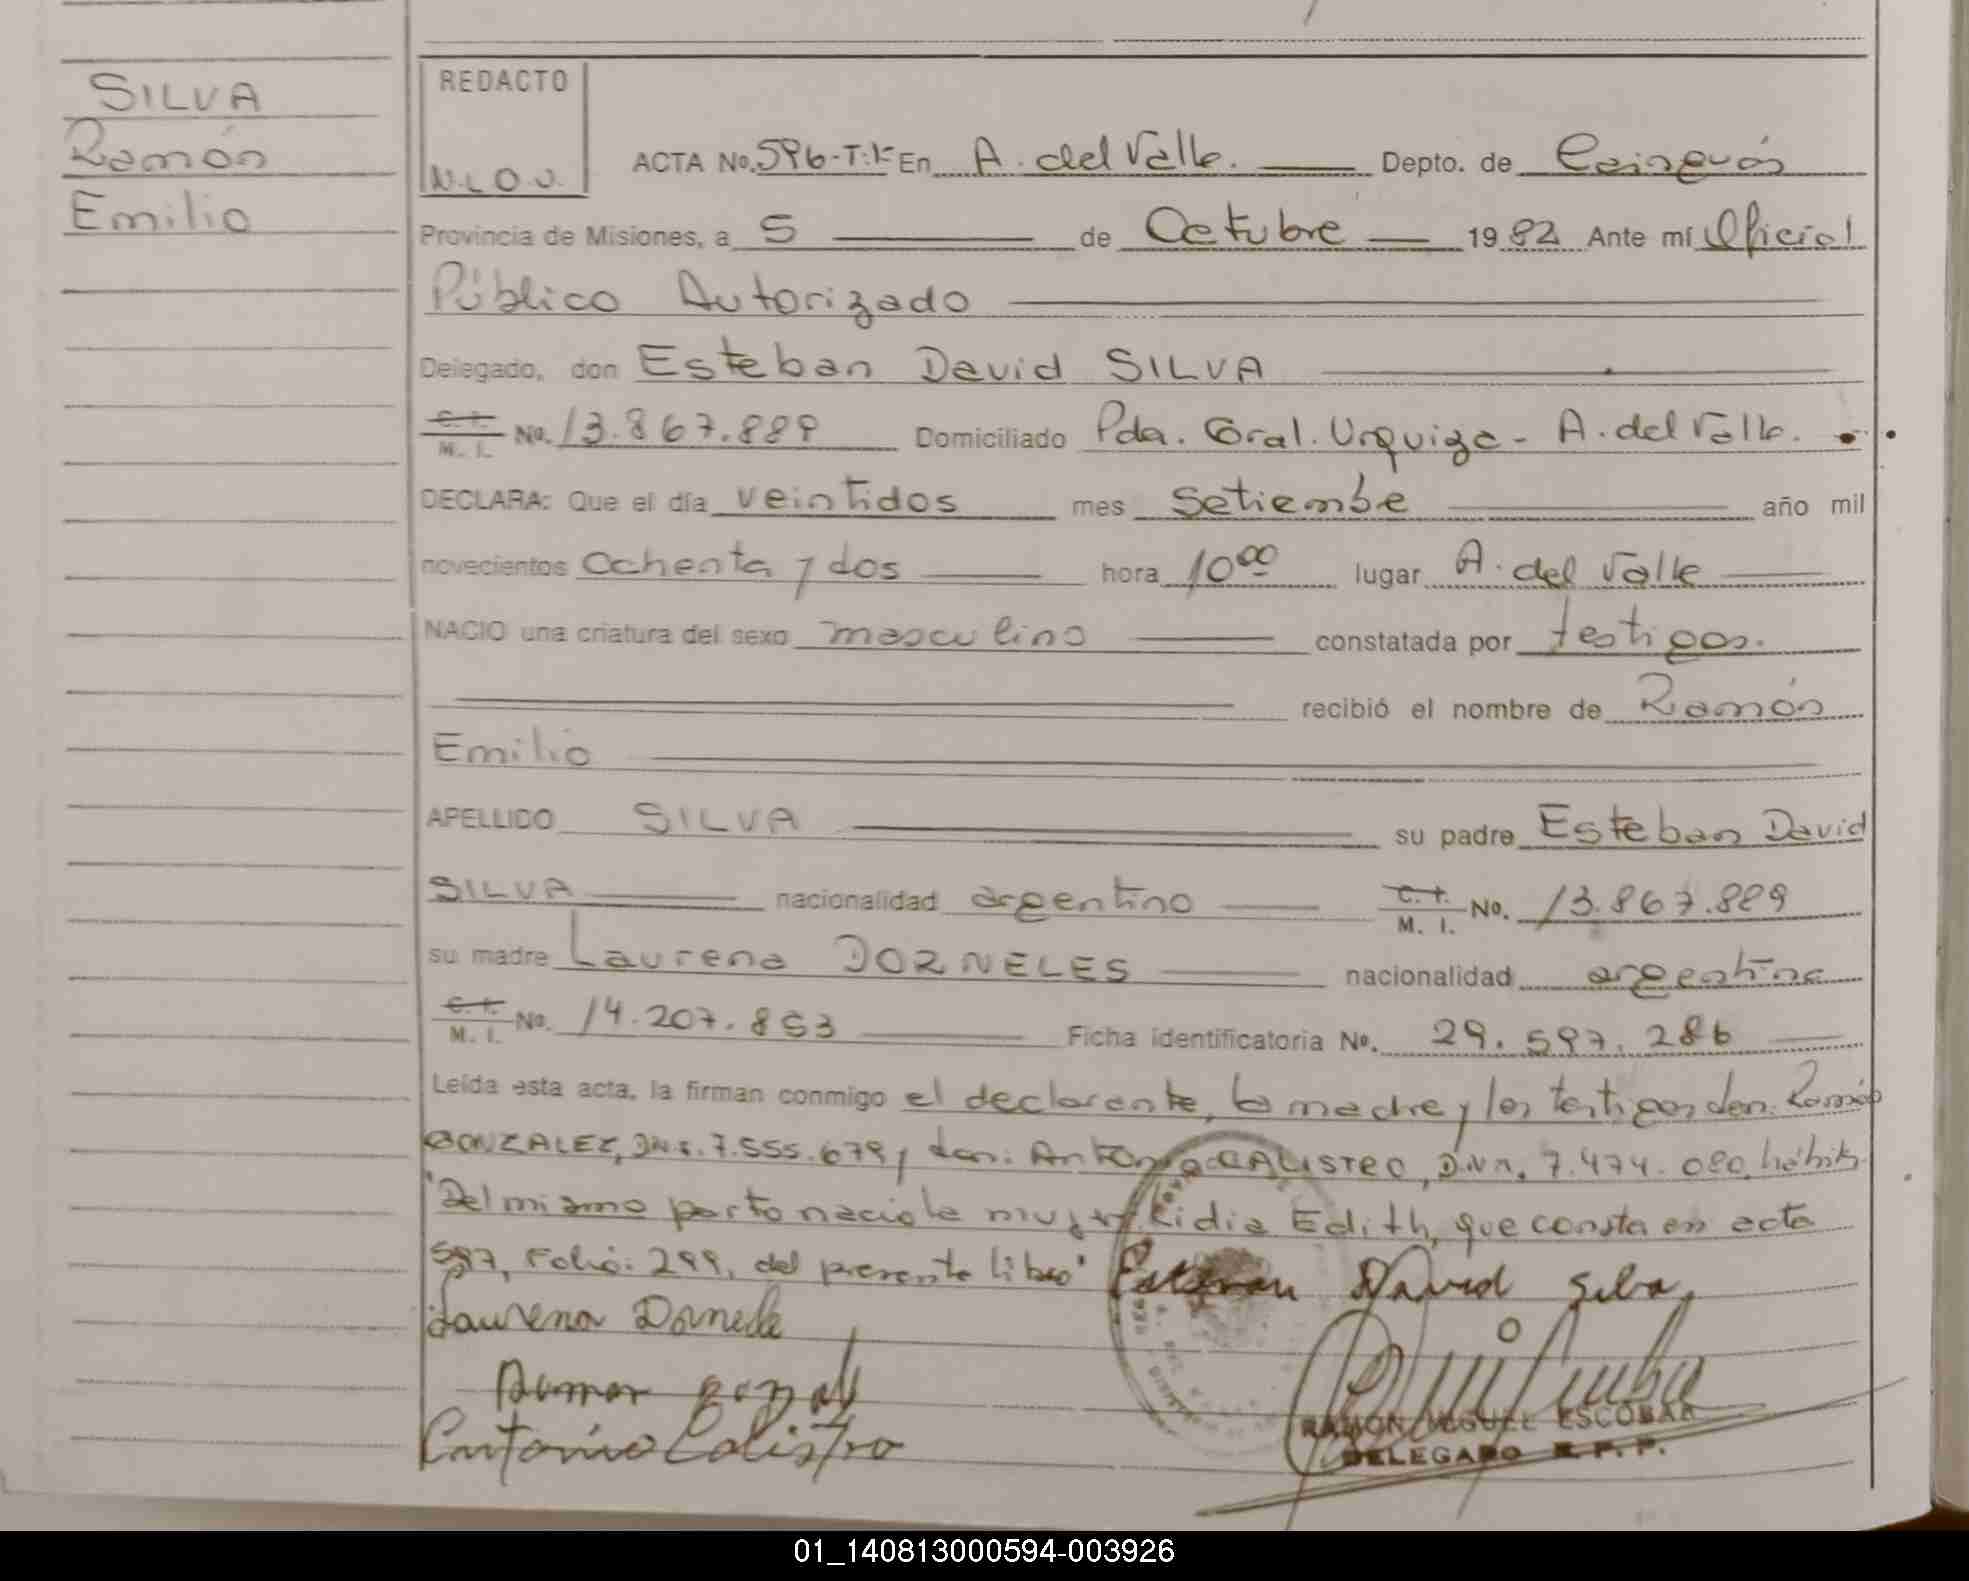 SILVA
Ramón
Emilio
REDACTO
N.L.O.V.
ACTA No. 596-T:I- En A. del Valle. Depto. de Cainguás
Provincia de Misiones, a 5 de Octubre 1982 Ante mí Oficial
Público Autorizado
Delegado, don Esteban David SILVA
C. I. M. I. No. 13.867.889 Domiciliado Pda. Gral. Urquiza - A. del Valle.
DECLARA: Que el día veintidos mes Setiembe año mil
novecientos ochenta y dos hora 10 00 lugar A. del Valle
NACIO una criatura del sexo masculino constatada por testigos.
recibió el nombre de Ramón
Emilio
APELLIDO SILVA su padre Esteban David
SILVA nacionalidad argentino C. I. M. I. No. 13.867.889
su madre Laurena DORNELES nacionalidad argentina
C. I. M. I. No. 14.207.853 Ficha identificatoria No. 29.597.286
Leída esta acta, la firman conmigo el declarante, la madre y los testigos don: Ramón
GONZALEZ, 7.555.679 y don: Antonio CALISTRO, 7.474.080, hábiles
"Del mismo parto nacio la mujer Lidia Edith, que consta en acta
597, Folio: 299, del presente libro"
Esteban David Silva
Laurena Dornele
Antonio Calistro
RAMON MIGUEL ESCOBAR
DELEGADO R. P. P.
01_140813000594-003926